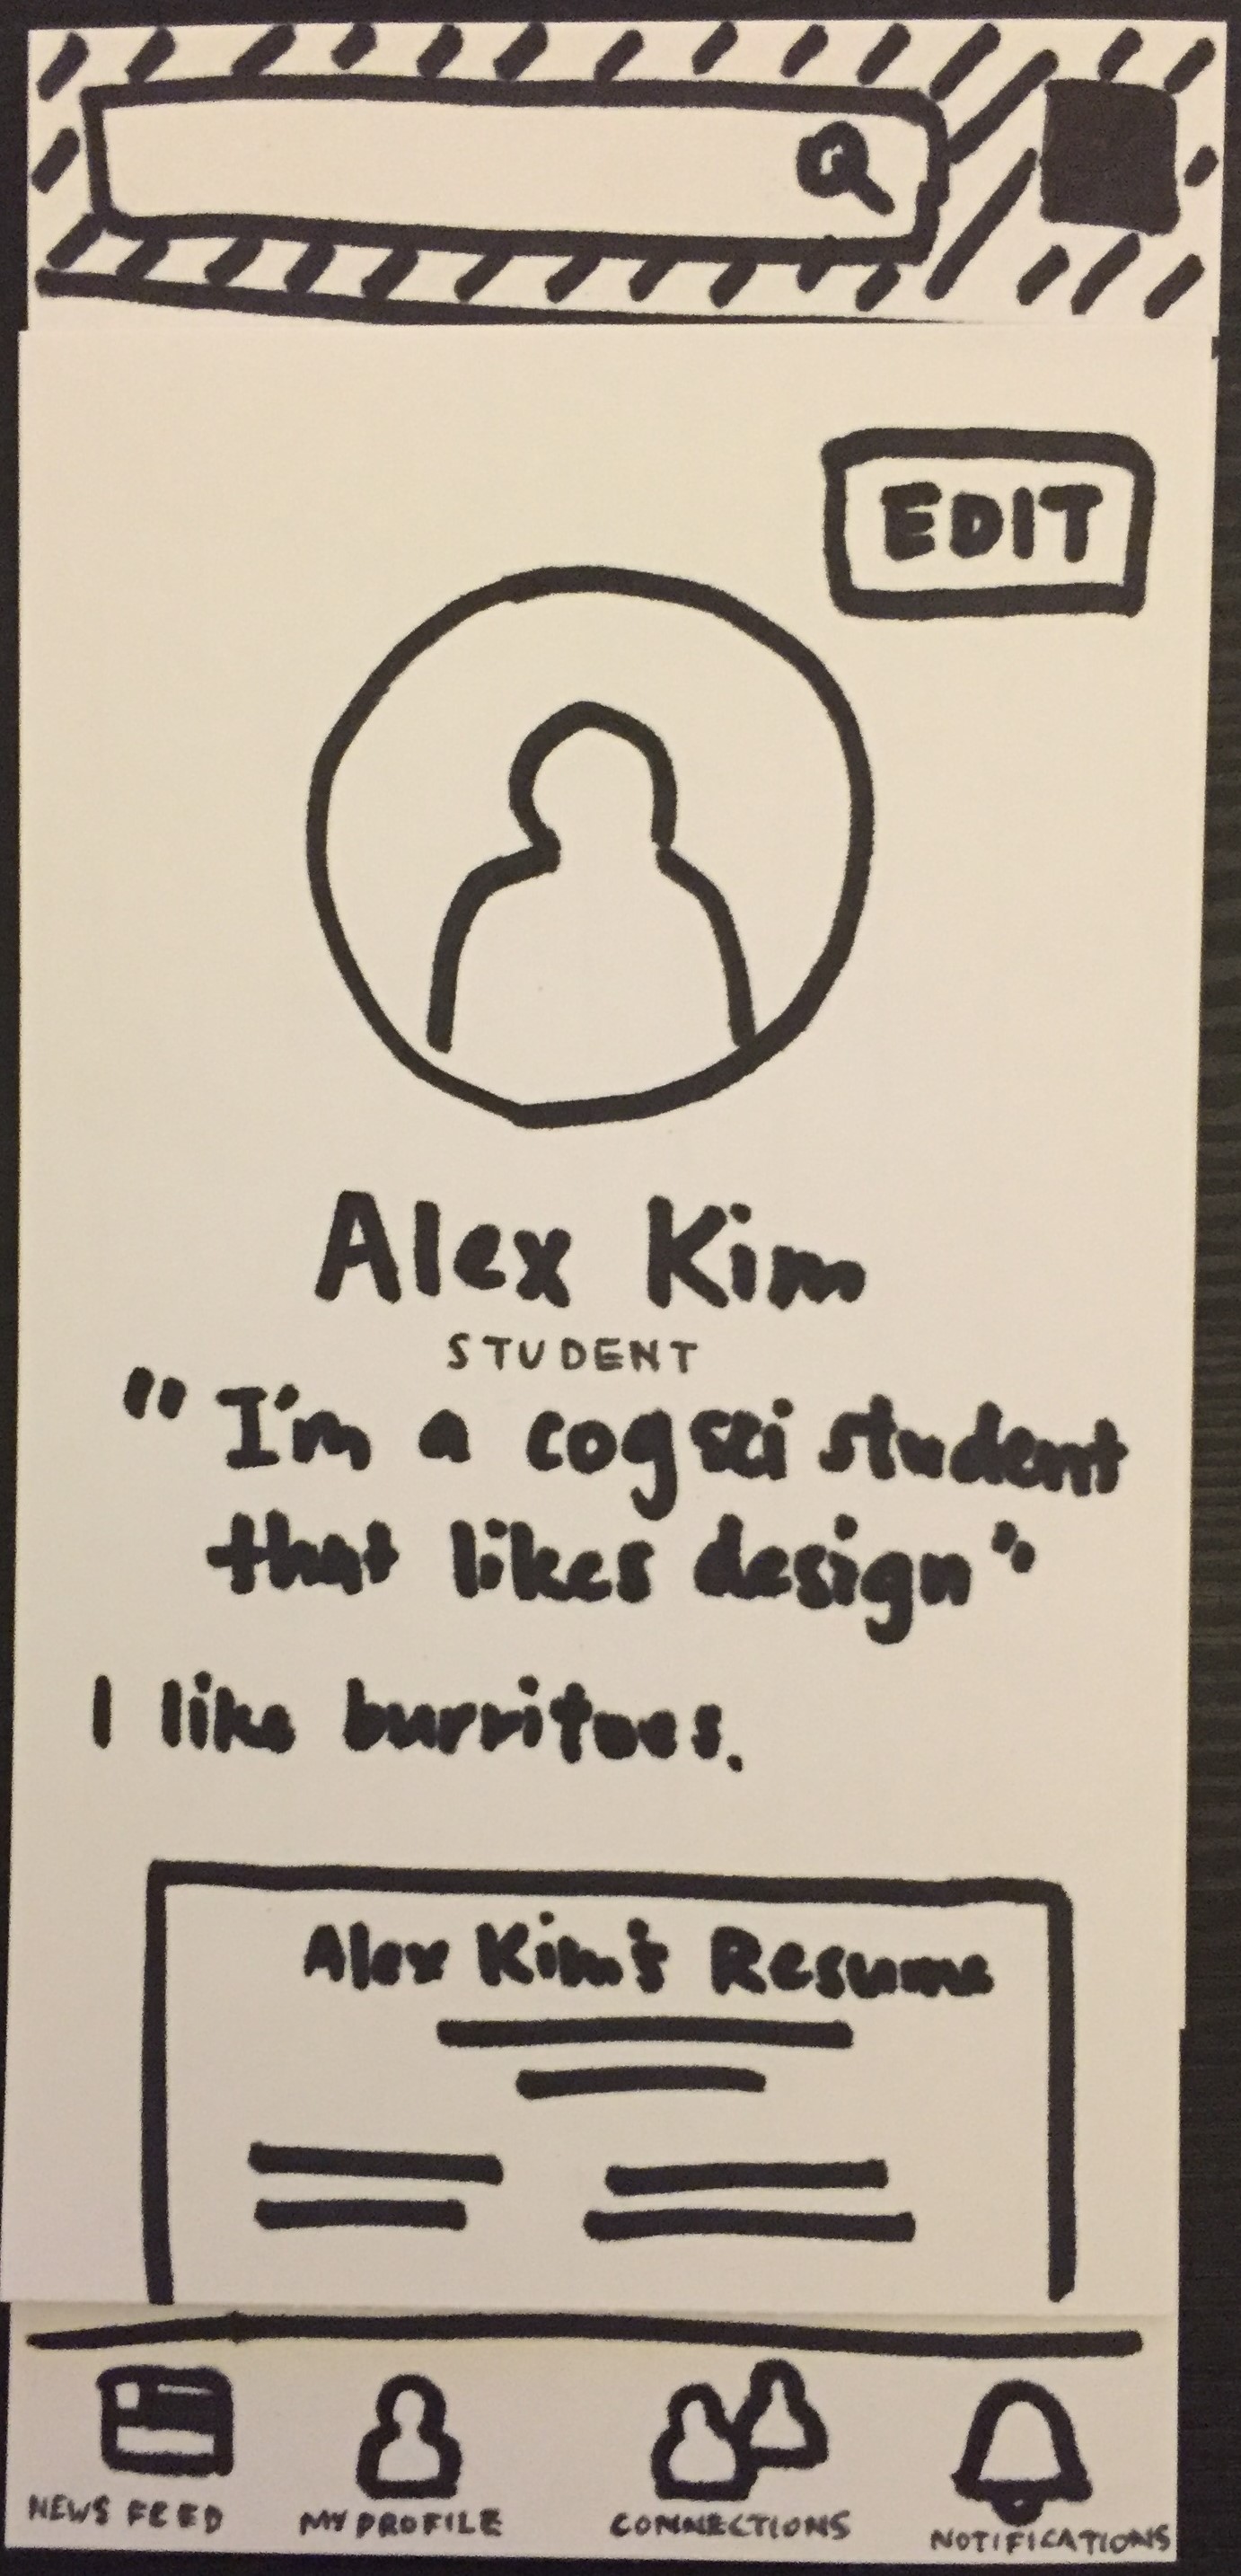 EDIT
Alex Kim
STUDENT
"I'm a cogsci student
that likes design"
I like burritoes.
Alex Kim's Resume
NEWS FEED
MY PROFILE
CONNECTIONS
NOTIFICATIONS